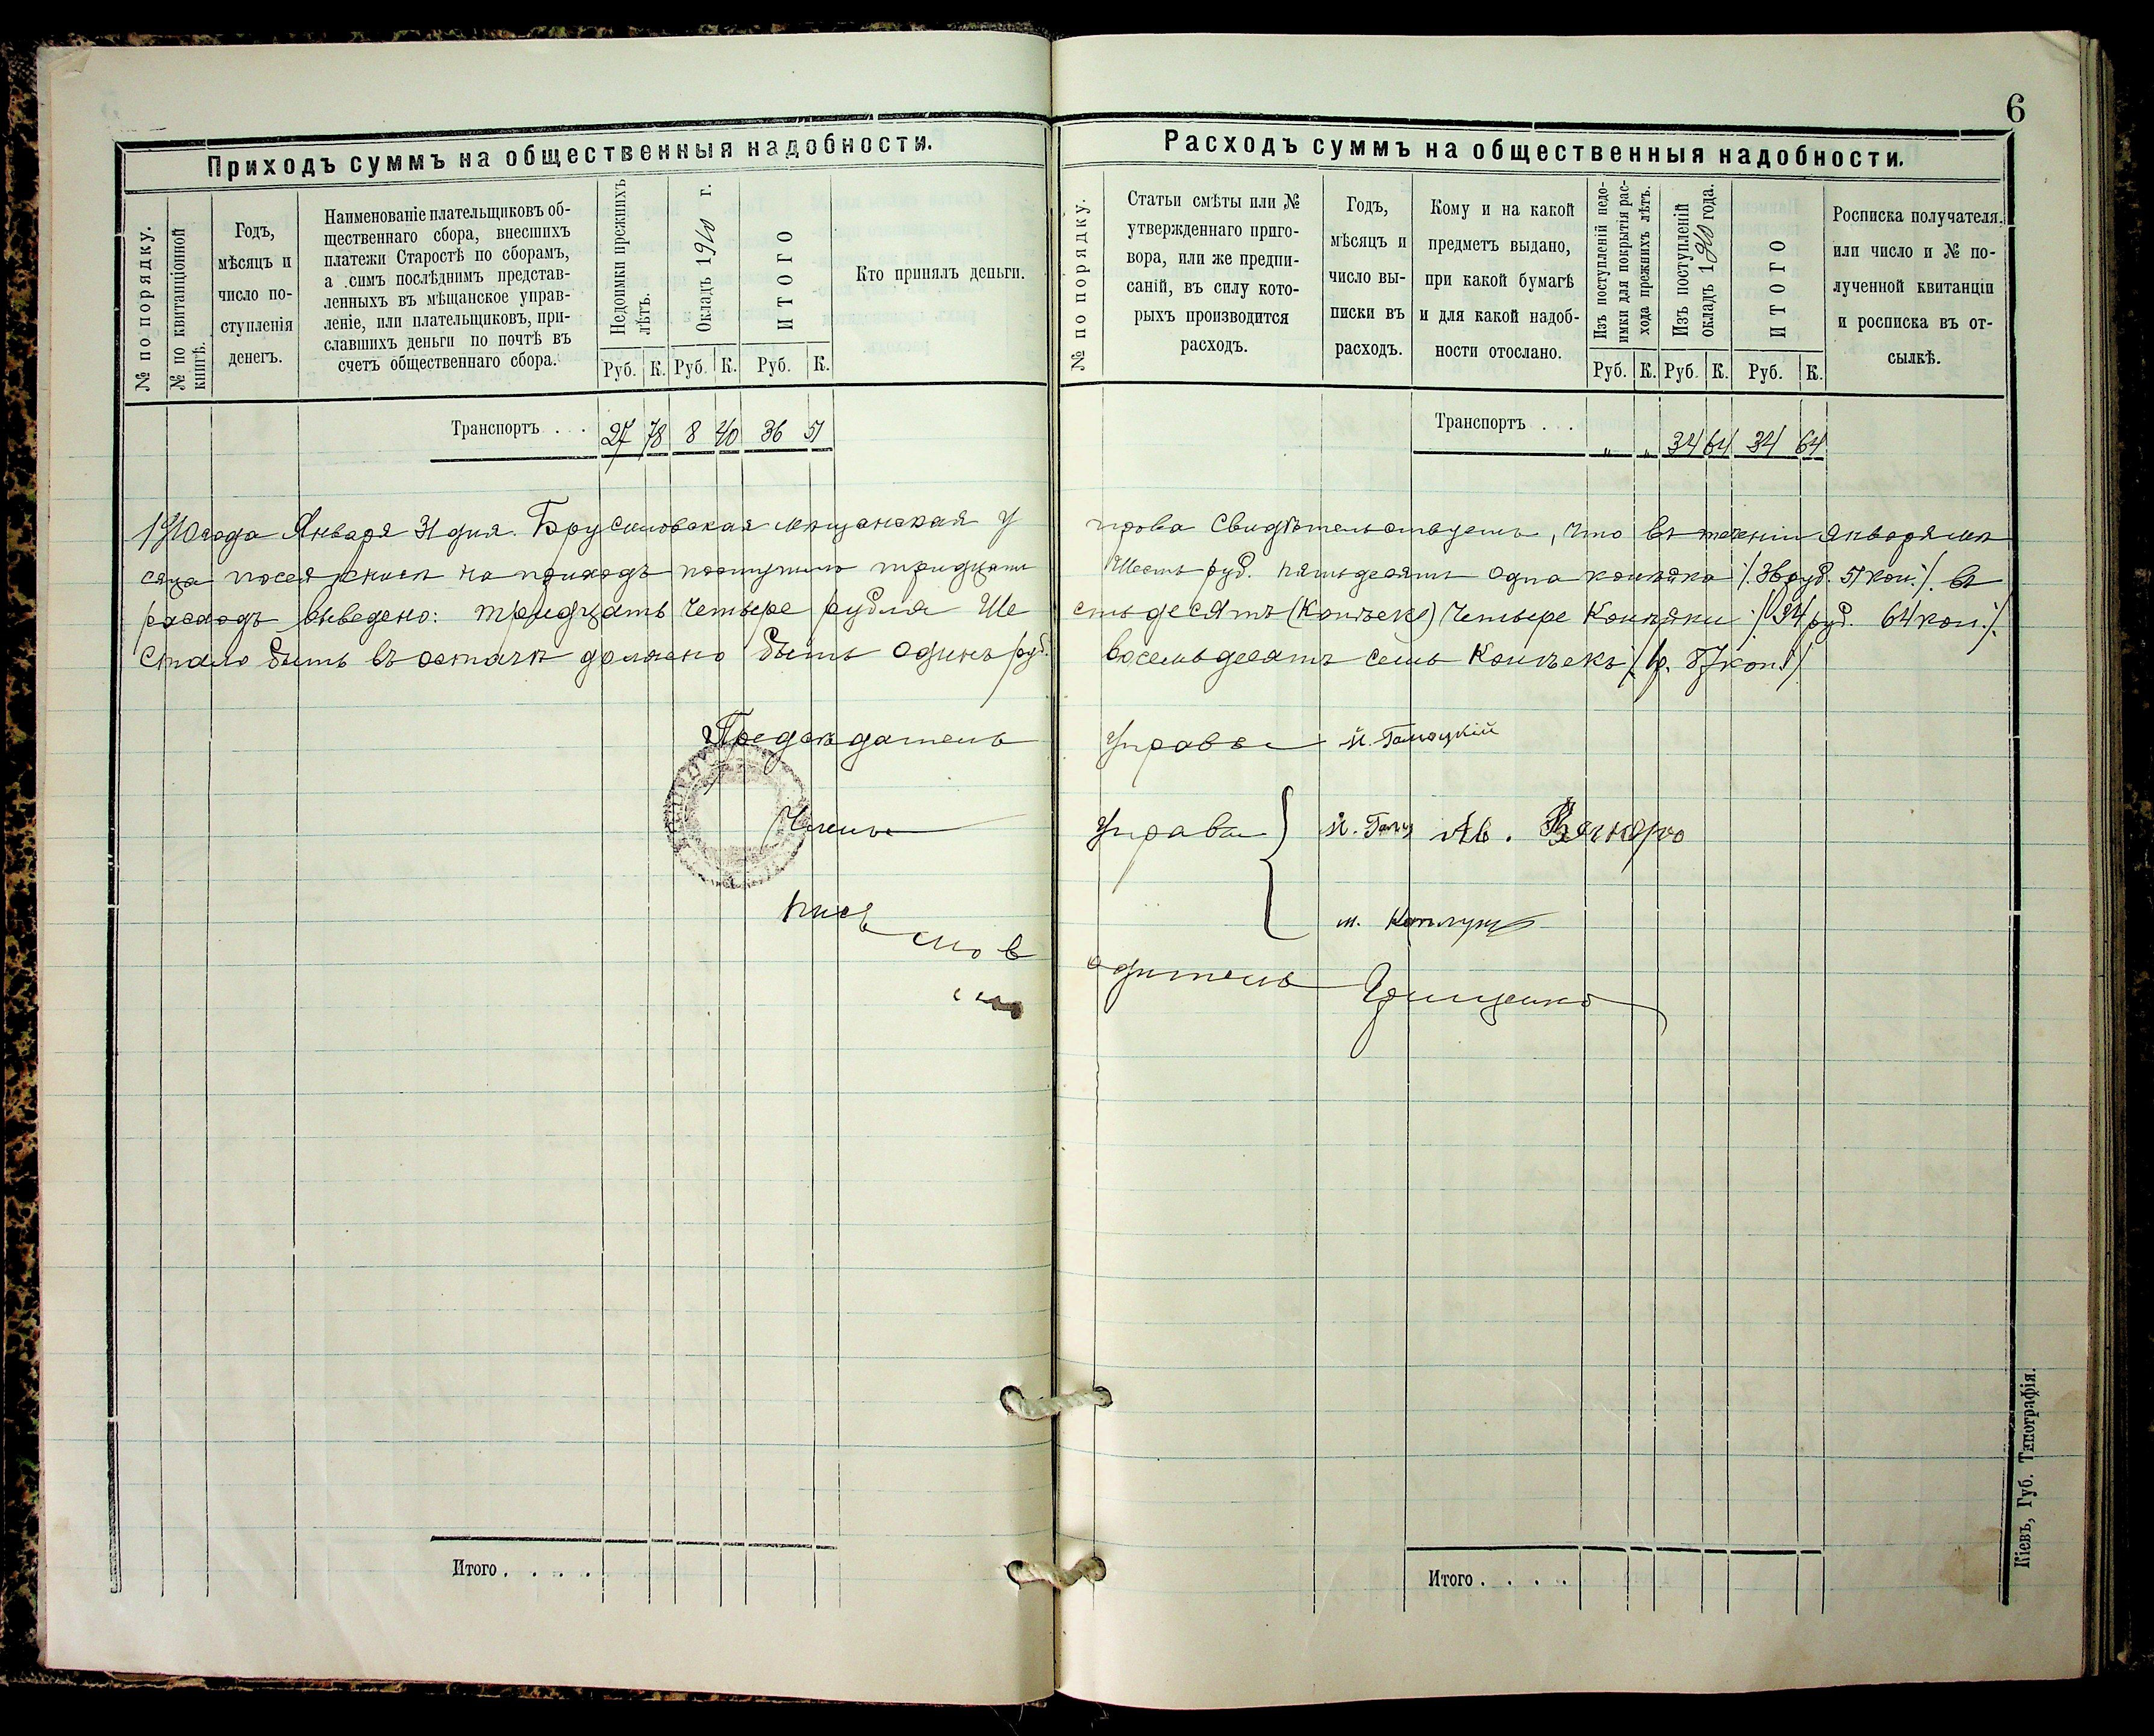 6
Приходъ суммъ на общественныя надобности.
№ по порядку.
№ по квитанціонной
книгѣ.
Годъ,
мѣсяцъ и
число по-
ступленія
денегъ.
Наименованіе плательщиковъ об-
щественнаго сбора, внесшихъ
платежи Старостѣ по сборамъ,
а симъ послѣднимъ представ-
ленныхъ въ мѣщанское управ-
леніе, или плательщиковъ, при-
славшихъ деньги по почтѣ въ
счетъ общественнаго сбора.
Недоимки прежнихъ
лѣтъ.
Окладъ 1910 г.
ИТОГО
Руб. К. Руб. К. Руб. К.
Кто принялъ деньги.
Транспортъ . . . 27 78 8 40 36 51
Расходъ суммъ на общественныя надобности.
№ по порядку.
Статьи смѣты или №
утвержденнаго приго-
вора, или же предпи-
саній, въ силу кото-
рыхъ производится
расходъ.
Годъ,
мѣсяцъ и
число вы-
писки въ
расходъ.
Кому и на какой
предметъ выдано,
при какой бумагѣ
и для какой надоб-
ности отослано.
Изъ поступленій недо-
имки для покрытія рас-
хода прежнихъ лѣтъ.
Изъ поступленій
окладъ 1910 года.
ИТОГО
Руб. К. Руб. К. Руб. К.
Росписка получателя,
или число и № по-
лученной квитанціи
и росписка въ от-
сылкѣ.
Транспортъ . . . " " 34 64 34 64
1910 года Января 31 дня. Брусиловская мѣщанская управа свидѣтельствуетъ, что въ теченіи января мѣ
сяца по сей книгѣ на приходъ поступило тридцать шесть руб. пятьдесятъ одна копѣйка /. 36 руб. 51 коп. /. въ
расходъ выведено: тридцать четыре рубля шестьдесятъ (копѣекъ) четыре копѣйки /. 34 руб. 64 коп. /.
Стало быть въ остаткѣ должно быть одинъ руб. восемьдесятъ семь копѣекъ /. 1 р. 87 коп. /.
Предсѣдатель Управы
Члены Управы
Письмоводитель Грищенко
Итого . . . .
Итого . . . .
Кіевъ, Губ. Типографія.